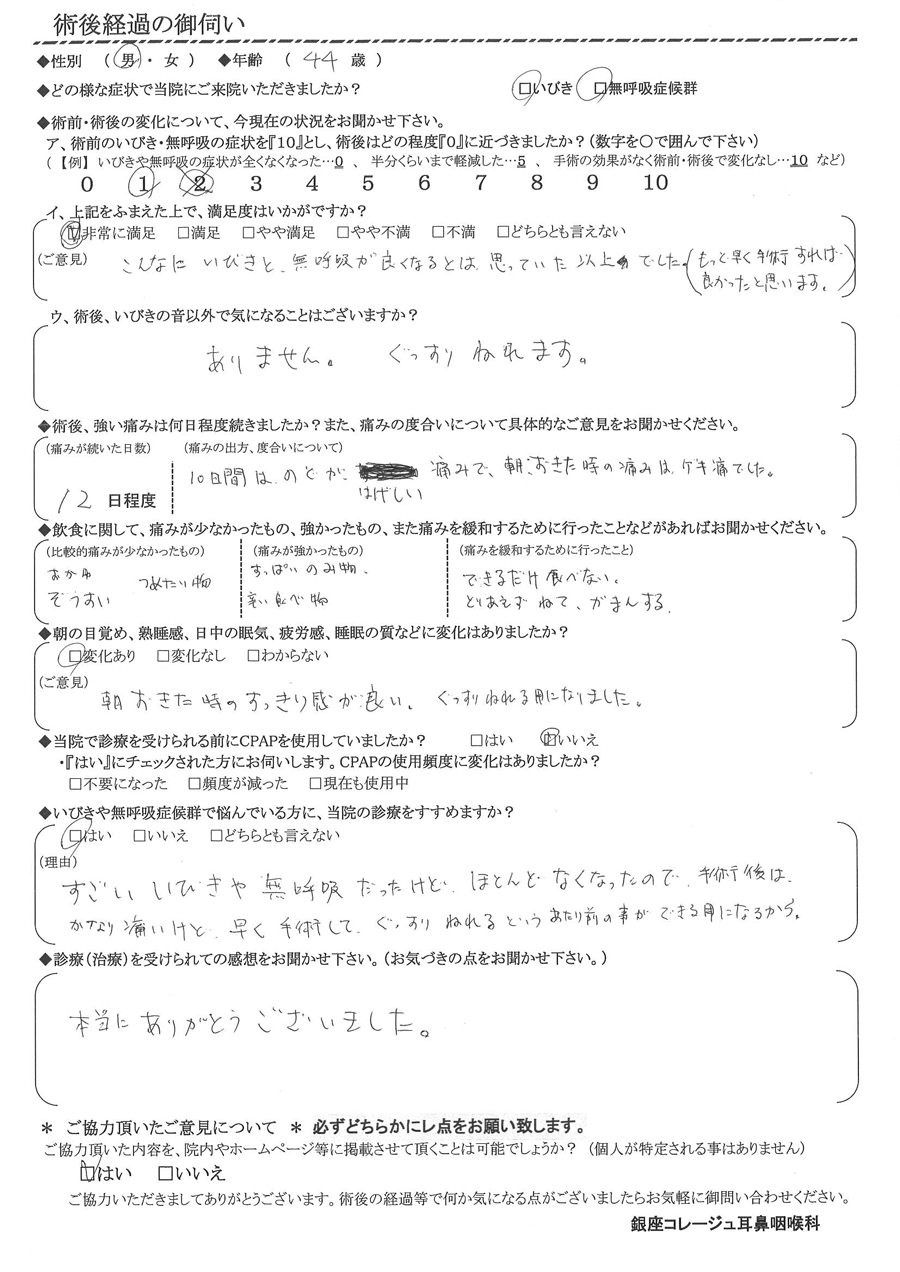 術後経過の御伺い
◆性別 （ 男 ・ 女 ） ◆年齢 （ 44 歳 ）
◆どの様な症状で当院にご来院いただきましたか？ □いびき □無呼吸症候群
◆術前・術後の変化について、今現在の状況をお聞かせ下さい。
ア、術前のいびき・無呼吸の症状を『10』とし、術後はどの程度『0』に近づきましたか？（数字を〇で囲んで下さい）
（【例】いびきや無呼吸の症状が全くなくなった…0 、 半分くらいまで軽減した…5 、 手術の効果がなく術前・術後で変化なし…10 など）
0 1 2 3 4 5 6 7 8 9 10
イ、上記をふまえた上で、満足度はいかがですか？
☑非常に満足 □満足 □やや満足 □やや不満 □不満 □どちらとも言えない
（ご意見） こんなに いびきと、無呼吸が良くなるとは 思っていた 以上 でした。（もっと早く手術すれば
良かったと思います。）
ウ、術後、いびきの音以外で気になることはございますか？
ありません。 ぐっすり ねれます。
◆術後、強い痛みは何日程度続きましたか？また、痛みの度合いについて具体的なご意見をお聞かせください。
（痛みが続いた日数） （痛みの出方、度合いについて）
10日間は、のどが 痛みで、朝、おきた時の痛みは、ゲキ痛でした。
はげしい
12 日程度
◆飲食に関して、痛みが少なかったもの、強かったもの、また痛みを緩和するために行ったことなどがあればお聞かせください。
（比較的痛みが少なかったもの） （痛みが強かったもの） （痛みを緩和するために行ったこと）
おかゆ つめたい物 すっぱいのみ物、 できるだけ食べない。
ぞうすい 辛い食べ物 とりあえず ねて、がまんする。
◆朝の目覚め、熟睡感、日中の眠気、疲労感、睡眠の質などに変化はありましたか？
□変化あり □変化なし □わからない
（ご意見）
朝おきた時のすっきり感が良い。 ぐっすりねれる用になりました。
◆当院で診療を受けられる前にCPAPを使用していましたか？ □はい ☑いいえ
・『はい』にチェックされた方にお伺いします。CPAPの使用頻度に変化はありましたか？
□不要になった □頻度が減った □現在も使用中
◆いびきや無呼吸症候群で悩んでいる方に、当院の診療をすすめますか？
□はい □いいえ □どちらとも言えない
（理由）
すごい いびきや 無呼吸 だったけど、ほとんど なくなったので、手術後は、
かなり 痛いけど、早く 手術して、ぐっすり ねれる という あたり前の事が できる用になるから。
◆診療（治療）を受けられての感想をお聞かせ下さい。（お気づきの点をお聞かせ下さい。）
本当に ありがとう ございました。
＊ ご協力頂いたご意見について ＊ 必ずどちらかにレ点をお願い致します。
ご協力頂いた内容を、院内やホームページ等に掲載させて頂くことは可能でしょうか？ （個人が特定される事はありません）
☑はい □いいえ
ご協力いただきましてありがとうございます。術後の経過等で何か気になる点がございましたらお気軽に御問い合わせください。
銀座コレージュ耳鼻咽喉科